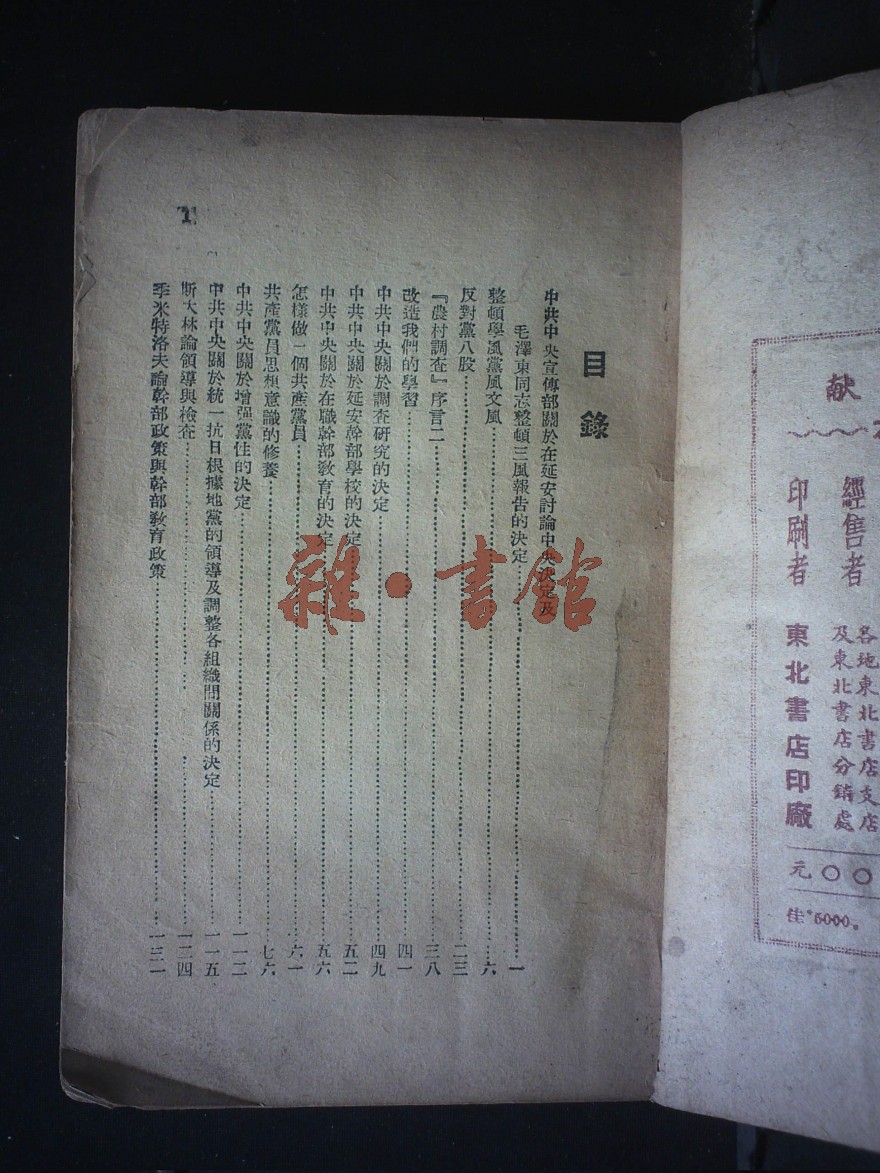 目錄
中共中央宣傳部關於在延安討論中央決定及
毛澤東同志整頓三風報告的決定……一
整頓學風黨風文風……六
反對黨八股……二三
『農村調查』序言二……三八
改造我們的學習……四一
中共中央關於調查研究的決定……四九
中共中央關於延安幹部學校的決定……五二
中共中央關於在職幹部教育的決定……五六
怎樣做一個共產黨員……六一
共產黨員思想意識的修養……七六
中共中央關於增强黨性的決定……一一二
中共中央關於統一抗日根據地黨的領導及調整各組織間關係的決定……一一五
斯大林論領導與檢查……一二四
季米特洛夫論幹部政策與幹部教育政策……一三一
1
雜·書館
献
經售者
各地東北書店支店
及東北書店分銷處
印刷者
東北書店印廠
元〇〇
佳.5000.